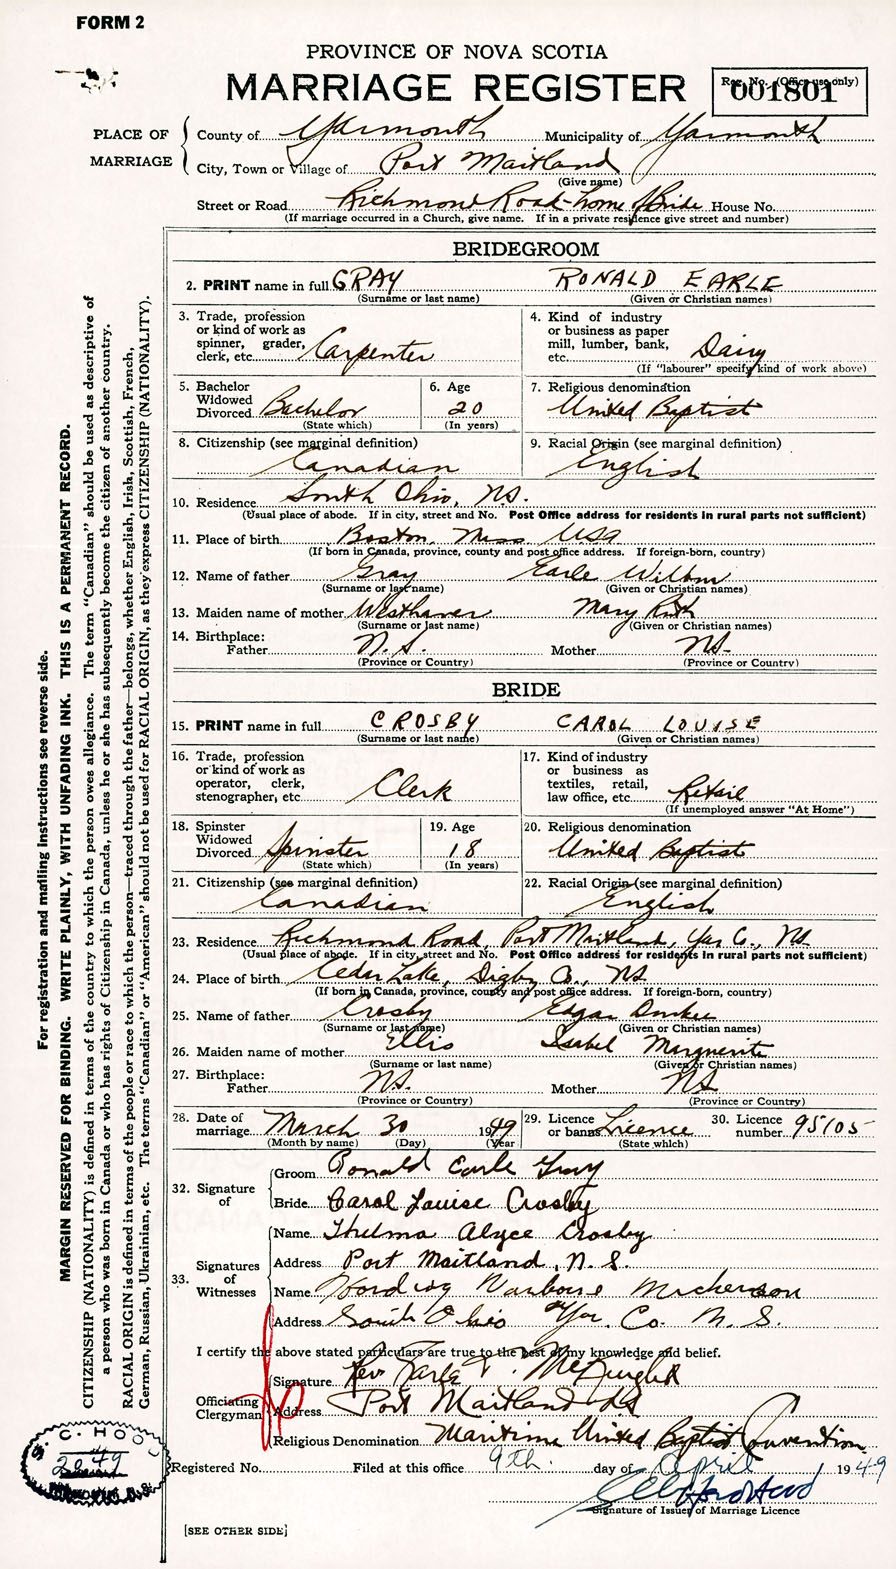 FORM 2
PROVINCE OF NOVA SCOTIA
MARRIAGE REGISTER
Reg. No. (Office use only)
001801
PLACE OF MARRIAGE
County of Yarmouth Municipality of Yarmouth
City, Town or Village of Port Maitland
(Give name)
Street or Road Richmond Road - home of Bride House No.
(If marriage occurred in a Church, give name. If in a private residence give street and number)
BRIDEGROOM
2. PRINT name in full GRAY RONALD EARLE
(Surname or last name) (Given or Christian names)
3. Trade, profession or kind of work as spinner, grader, clerk, etc. Carpenter
4. Kind of industry or business as paper mill, lumber, bank, etc. Dairy
(If "labourer" specify kind of work above)
5. Bachelor Widowed Divorced Bachelor
(State which)
6. Age 20
(In years)
7. Religious denomination
United Baptist
8. Citizenship (see marginal definition)
Canadian
9. Racial Origin (see marginal definition)
English
10. Residence South Ohio, N.S.
(Usual place of abode. If in city, street and No. Post Office address for residents in rural parts not sufficient)
11. Place of birth Boston, Mass USA
(If born in Canada, province, county and post office address. If foreign-born, country)
12. Name of father Gray Earle
(Surname or last name) (Given or Christian names)
13. Maiden name of mother Westhaver Mary Ruth
(Surname or last name) (Given or Christian names)
14. Birthplace:
Father N.S. Mother NS.
(Province or Country) (Province or Country)
BRIDE
15. PRINT name in full CROSBY CAROL LOUISE
(Surname or last name) (Given or Christian names)
16. Trade, profession or kind of work as operator, clerk, stenographer, etc. Clerk
17. Kind of industry or business as textiles, retail, law office, etc. Retail
(If unemployed answer "At Home")
18. Spinster Widowed Divorced Spinster
(State which)
19. Age 18
(In years)
20. Religious denomination
United Baptist
21. Citizenship (see marginal definition)
Canadian
22. Racial Origin (see marginal definition)
English
23. Residence Richmond Road, Port Maitland, Yar Co., NS
(Usual place of abode. If in city, street and No. Post Office address for residents in rural parts not sufficient)
24. Place of birth Cedar Lake, Digby Co., NS
(If born in Canada, province, county and post office address. If foreign-born, country)
25. Name of father Crosby Edgar
(Surname or last name) (Given or Christian names)
26. Maiden name of mother Ellis Isabel Marguerite
(Surname or last name) (Given or Christian names)
27. Birthplace:
Father NS. Mother NS
(Province or Country) (Province or Country)
28. Date of marriage March 30 1949
(Month by name) (Day) (Year)
29. Licence or banns Licence
(State which)
30. Licence number 95105
32. Signature of
Groom Ronald Earle Gray
Bride Carol Louise Crosby
33. Signatures of Witnesses
Name Thelma Alyce Crosby
Address Port Maitland, N.S.
Name
Address South Ohio Yar. Co. N.S.
I certify the above stated particulars are true to the best of my knowledge and belief.
Officiating Clergyman
Signature Rev
Address Port Maitland NS
Religious Denomination Maritime United Baptist Convention
Registered No. Filed at this office 9th day of April 1949
Signature of Issuer of Marriage Licence
[SEE OTHER SIDE]
For registration and mailing instructions see reverse side.
MARGIN RESERVED FOR BINDING. WRITE PLAINLY, WITH UNFADING INK. THIS IS A PERMANENT RECORD.
CITIZENSHIP (NATIONALITY) is defined in terms of the country to which the person owes allegiance. The term "Canadian" should be used as descriptive of
a person who was born in Canada or who has rights of Citizenship in Canada, unless he or she has subsequently become the citizen of another country.
RACIAL ORIGIN is defined in terms of the people or race to which the person—traced through the father—belongs, whether English, Irish, Scottish, French,
German, Russian, Ukrainian, etc. The terms "Canadian" or "American" should not be used for RACIAL ORIGIN, as they express CITIZENSHIP (NATIONALITY).